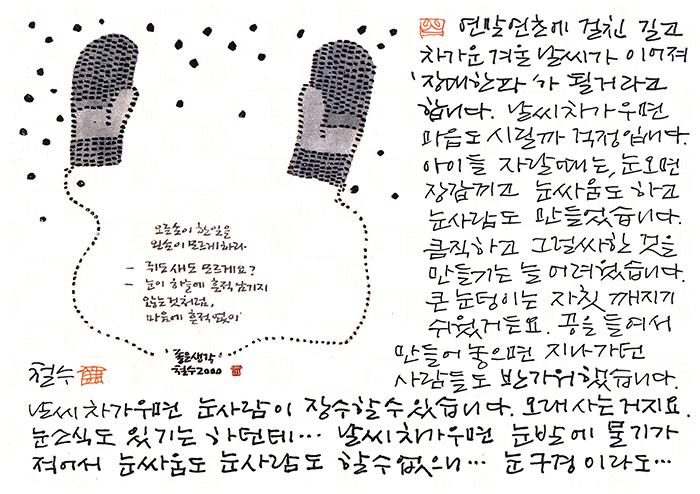 오른손이 한 일을
왼손이 모르게 하라.
- 쥐도 새도 모르게요?
- 눈이 하늘에 흔적 남기지
않는 것처럼,
마음에 흔적 없이
좋은생각
철수2000
연말연초에 걸친 길고
차가운 겨울 날씨가 이어져
'장대한파'가 될거라고
합니다. 날씨 차가우면
마음도 시릴까 걱정입니다.
아이들 자랄때는, 눈오면
장갑끼고 눈싸움도 하고
눈사람도 만들었습니다.
큼직하고 그럴싸한 것을
만들기는 늘 어려웠습니다.
큰 눈덩이는 자칫 깨지기
쉬웠거든요. 공을 들여서
만들어 놓으면 지나가던
사람들도 반가워했습니다.
철수
날씨 차가우면 눈사람이 장수할 수 있습니다. 오래 사는거지요.
눈소식도 있기는 하던데··· 날씨 차가우면 눈발에 물기가
적어서 눈싸움도 눈사람도 할 수 없으니··· 눈 구경이라도···